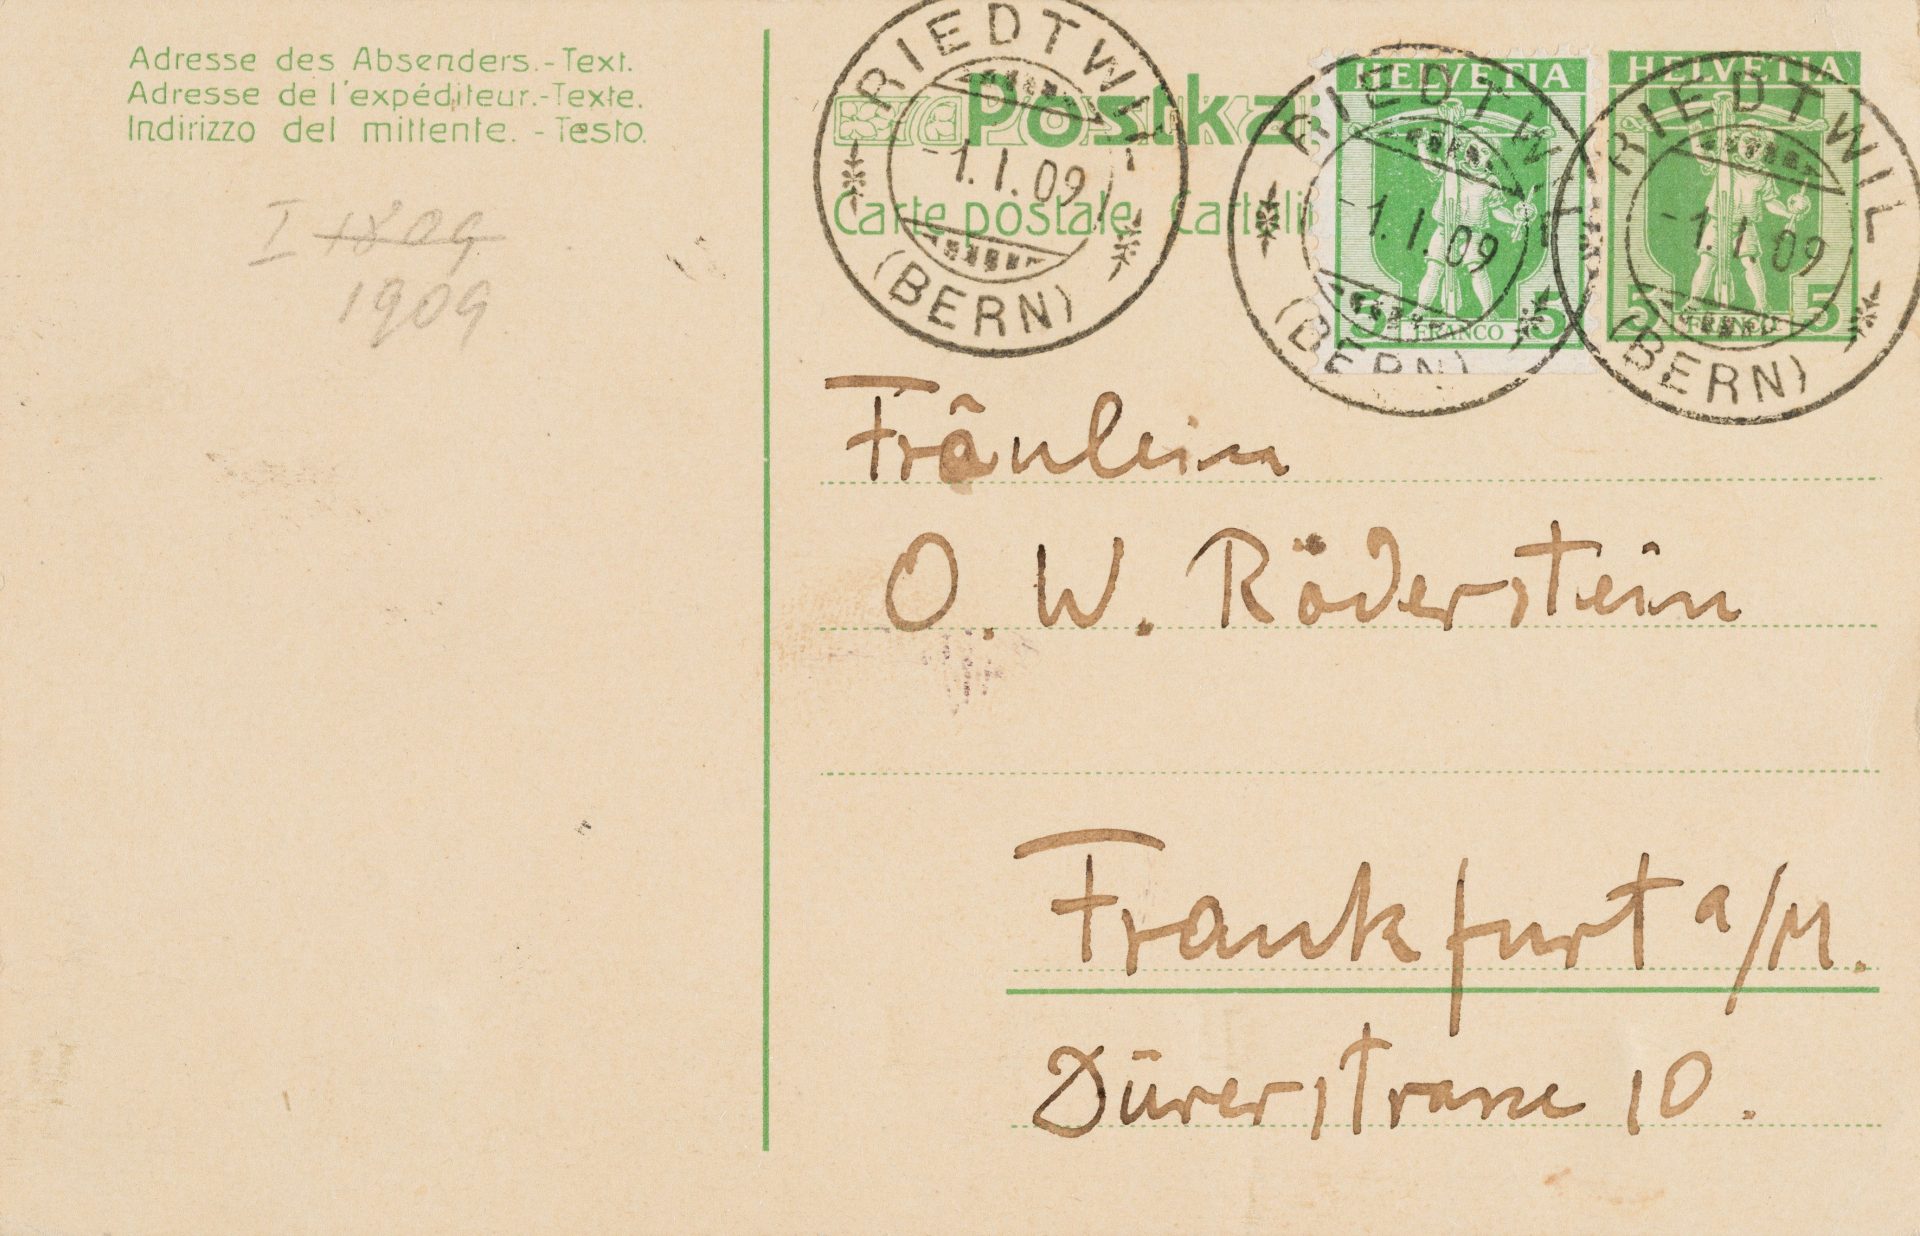 Adresse des Absenders.-Text.
Adresse de l'expéditeur.-Texte.
Indirizzo del mittente. - Testo.
I 1809
1909
Postka
Carte postale. Cartoli
RIEDTWIL
-1.I.09
(BERN)
HELVETIA
5 FRANCO 5
RIEDTWIL
-1.I.09
(BERN)
HELVETIA
5 FRANCO 5
RIEDTWIL
-1.I.09
(BERN)
Fräulein
O. W. Röderstein
Frankfurt a/M.
Dürerstrasse 10.